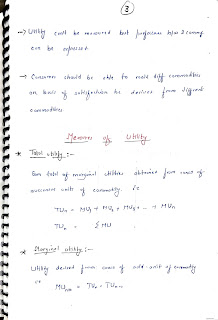 3
→ Utility can't be measured but preferences b/w 2 commodity
can be expressed
→ Consumer should be able to rank diff commodities
on basis of satisfaction he derives from different
commodities
Measures of Utility
* Total utility :-
Sum total of marginal utilities obtained from cons of
successive units of commodity. ie
TUn = MU1 + MU2 + MU3 + ... + MUn
TUn = ΣMU
* Marginal utility :-
Utility derived from cons of add unit of commodity
ie
MUnth = TUn - TUn-1